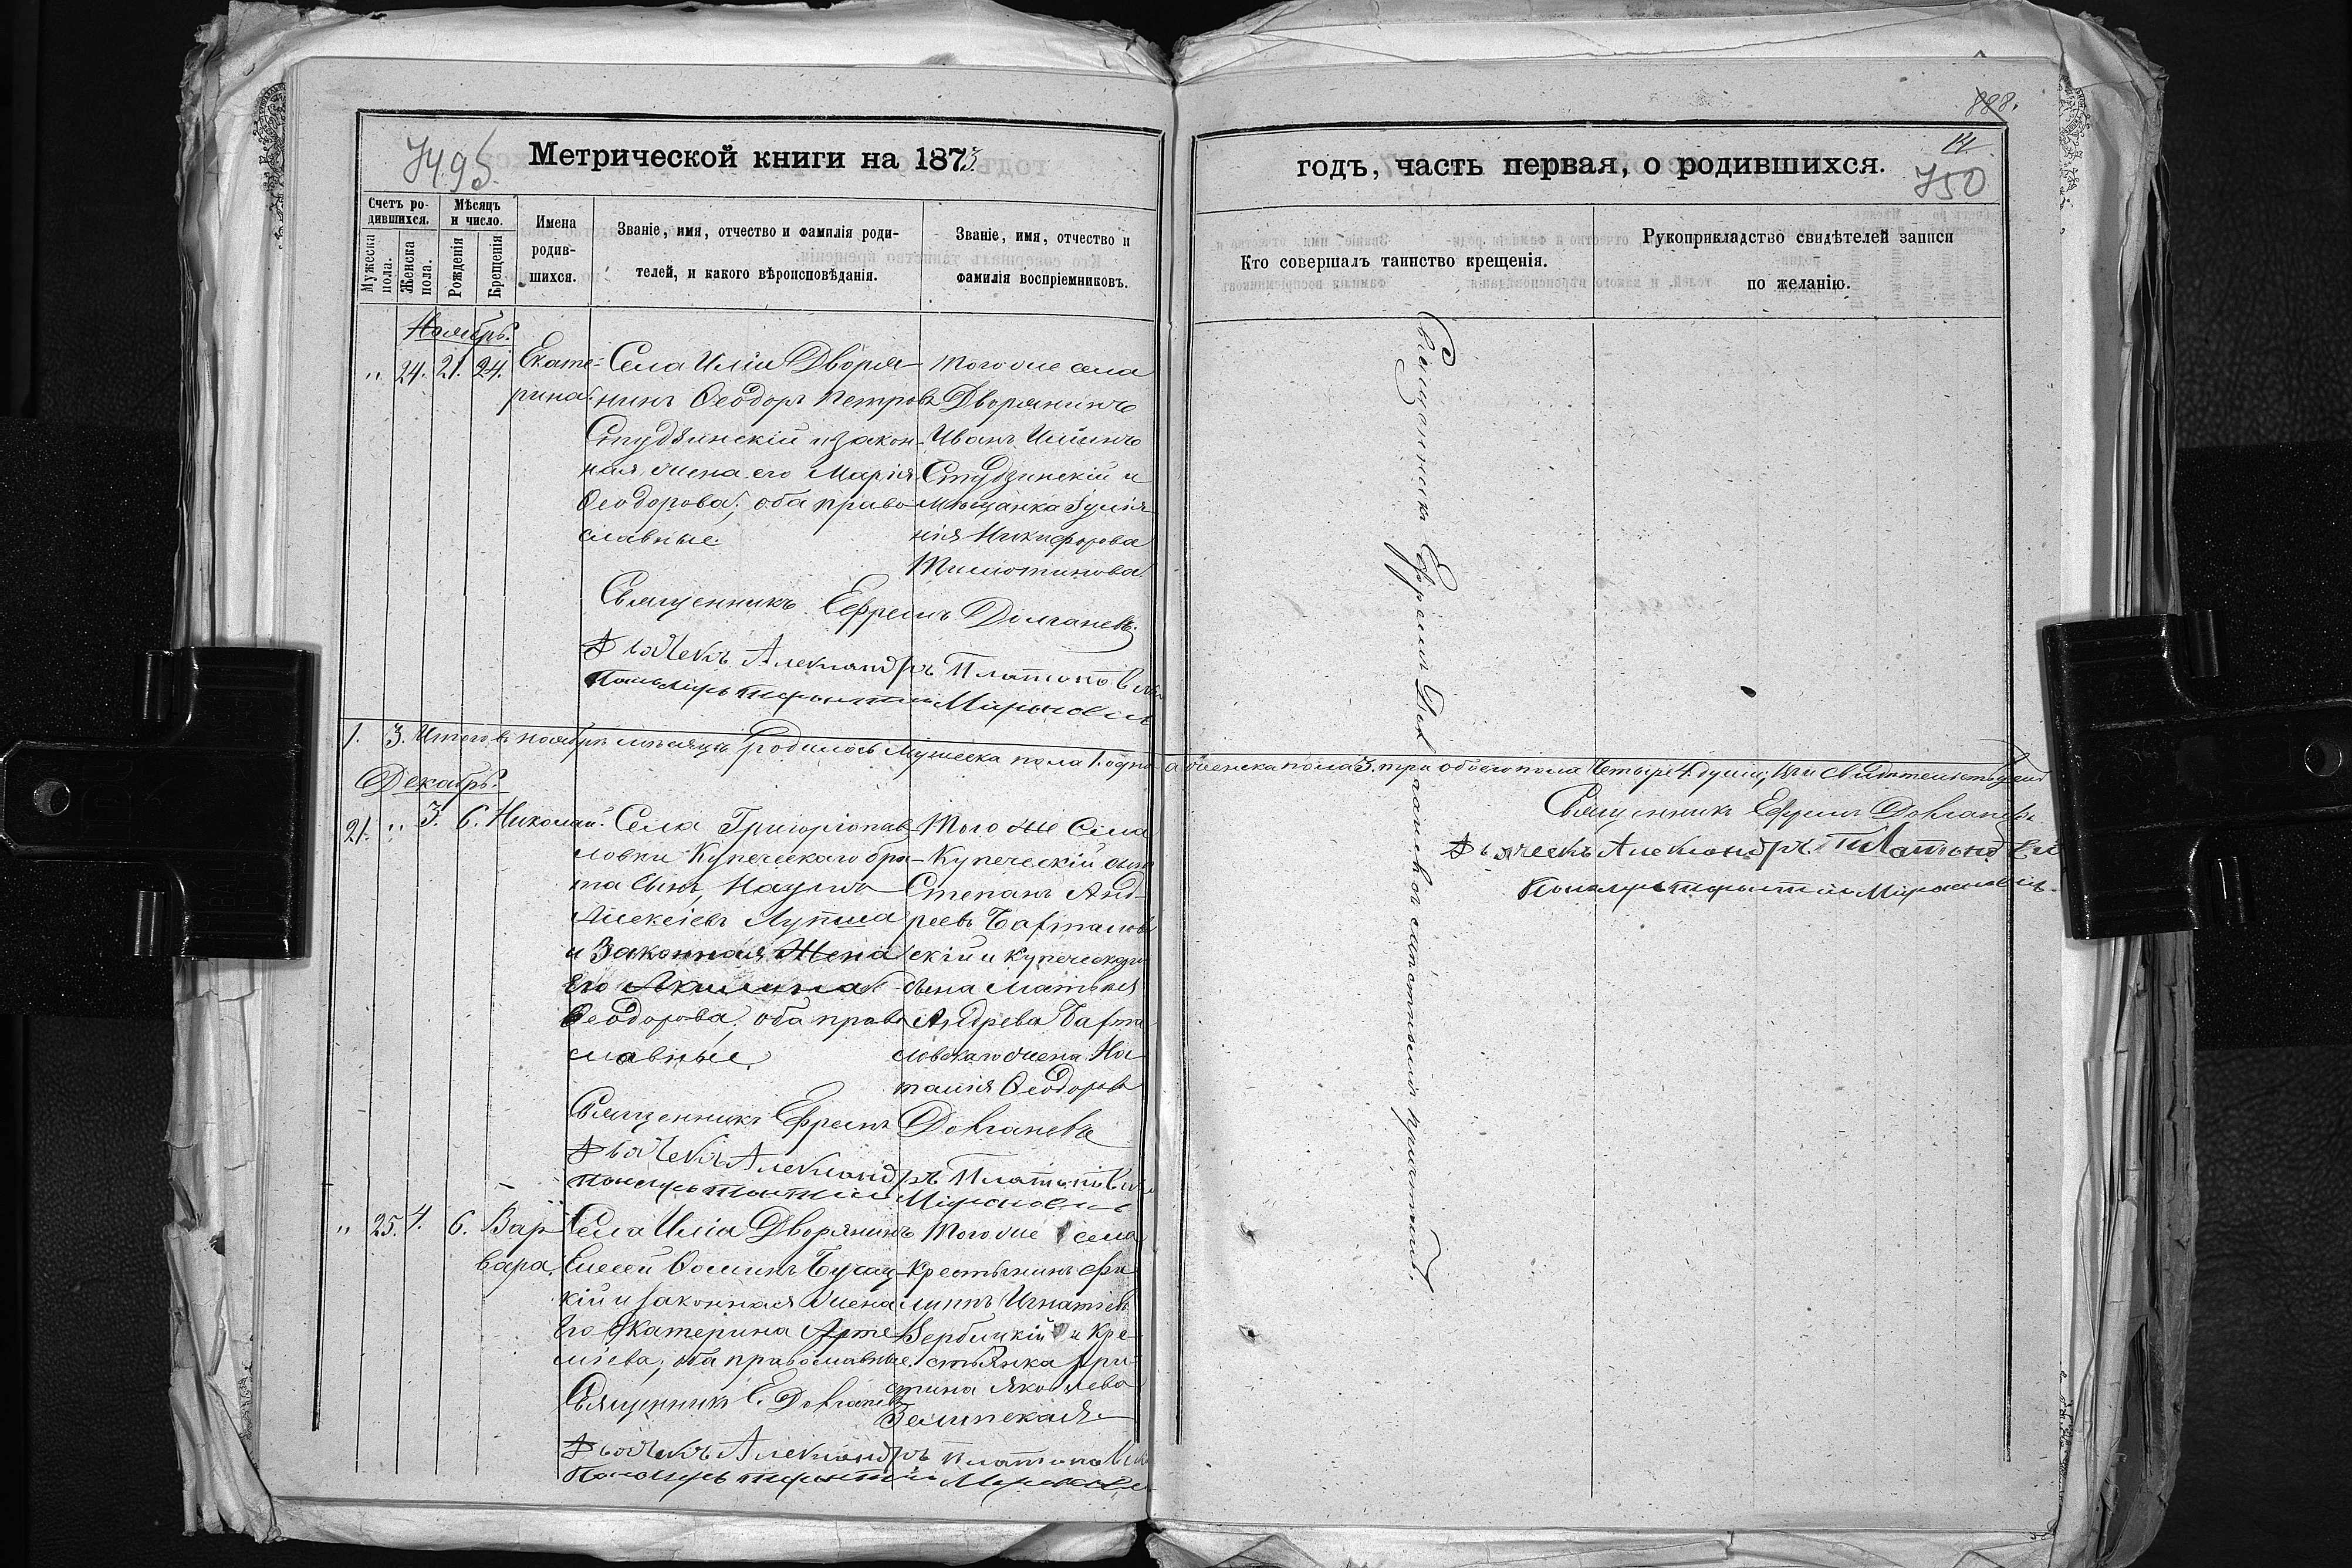 749 об.
Метрической книги на 1873
Счетъ родившихся.
Мѣсяцъ и число.
Мужеска пола.
Женска пола.
Рожденія
Крещенія
Имена родившихся.
Званіе, имя, отчество и фамилія роди-
телей, и какого вѣроисповѣданія.
Званіе, имя, отчество и
фамилія воспріемниковъ.
Ноябрь.
„ 24. 21. 24.
Екате-
рина.
Села Иліи Дворя-
нинъ Ѳеодоръ Петровъ
Студзинскій и закон-
ная жена его Марія
Ѳеодорова; оба право
славные.
Того же села
Дворянинъ
Иванъ
Студзинскій и
мѣщанка
нія Никифорова
Священникъ Ефремъ Долганевъ
Дьячекъ Александръ Платоновичъ
Пономарь Терентій Мироновичъ
1. 3. Итого въ ноябрѣ мѣсяцѣ родилось Мужеска пола 1. одна а женска пола 3. три обоего пола Четыре 4. души;
Декабрь.
21. „ 3. 6. Николай.
Села Григоріопав
ловки Купеческаго бра-
та сынъ, Наумъ
Алексіевъ Лупша
и Законная Жена
Его Акилина
Ѳеодорова; оба право
славные.
Того же Села
Купеческій сынъ
Степанъ Анд-
реевъ
скій и купеческаго
сына Матвея
Андреева
ловскаго жена На
талія Ѳеодорова
Священникъ Ефремъ Долганевъ
Дьячекъ Александръ Платоновичъ
Пономарь Мироновичъ
„ 25. 4. 6. Вар
вара.
Села Иліи Дворянинъ
Елисей Ѳоминъ
кій и законная жена
Его Екатерина Арте
міева; оба православные.
Того же села
Крестьянинъ Фи
липпъ Игнатіевъ
Вербицкій и Кре-
стьянка Хри
стина Яковлева
Священникъ Е. Долганевъ
Дьячекъ Александръ Платоновичъ
Пономарь Терентій Мироновичъ
888.
14.
750
годъ, часть первая, о родившихся.
Кто совершалъ таинство крещенія.
Рукоприкладство свидѣтелей записи
по желанію.
Священникъ Ефремъ Долганевъ съ причтомъ.
Священникъ Ефремъ Долганевъ
Дьячекъ Александръ Платоновичъ
Пономарь Терентій Мироновичъ